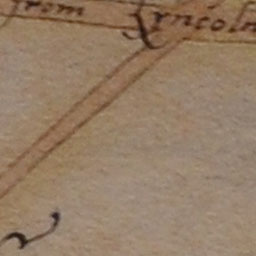 from Lyncoln